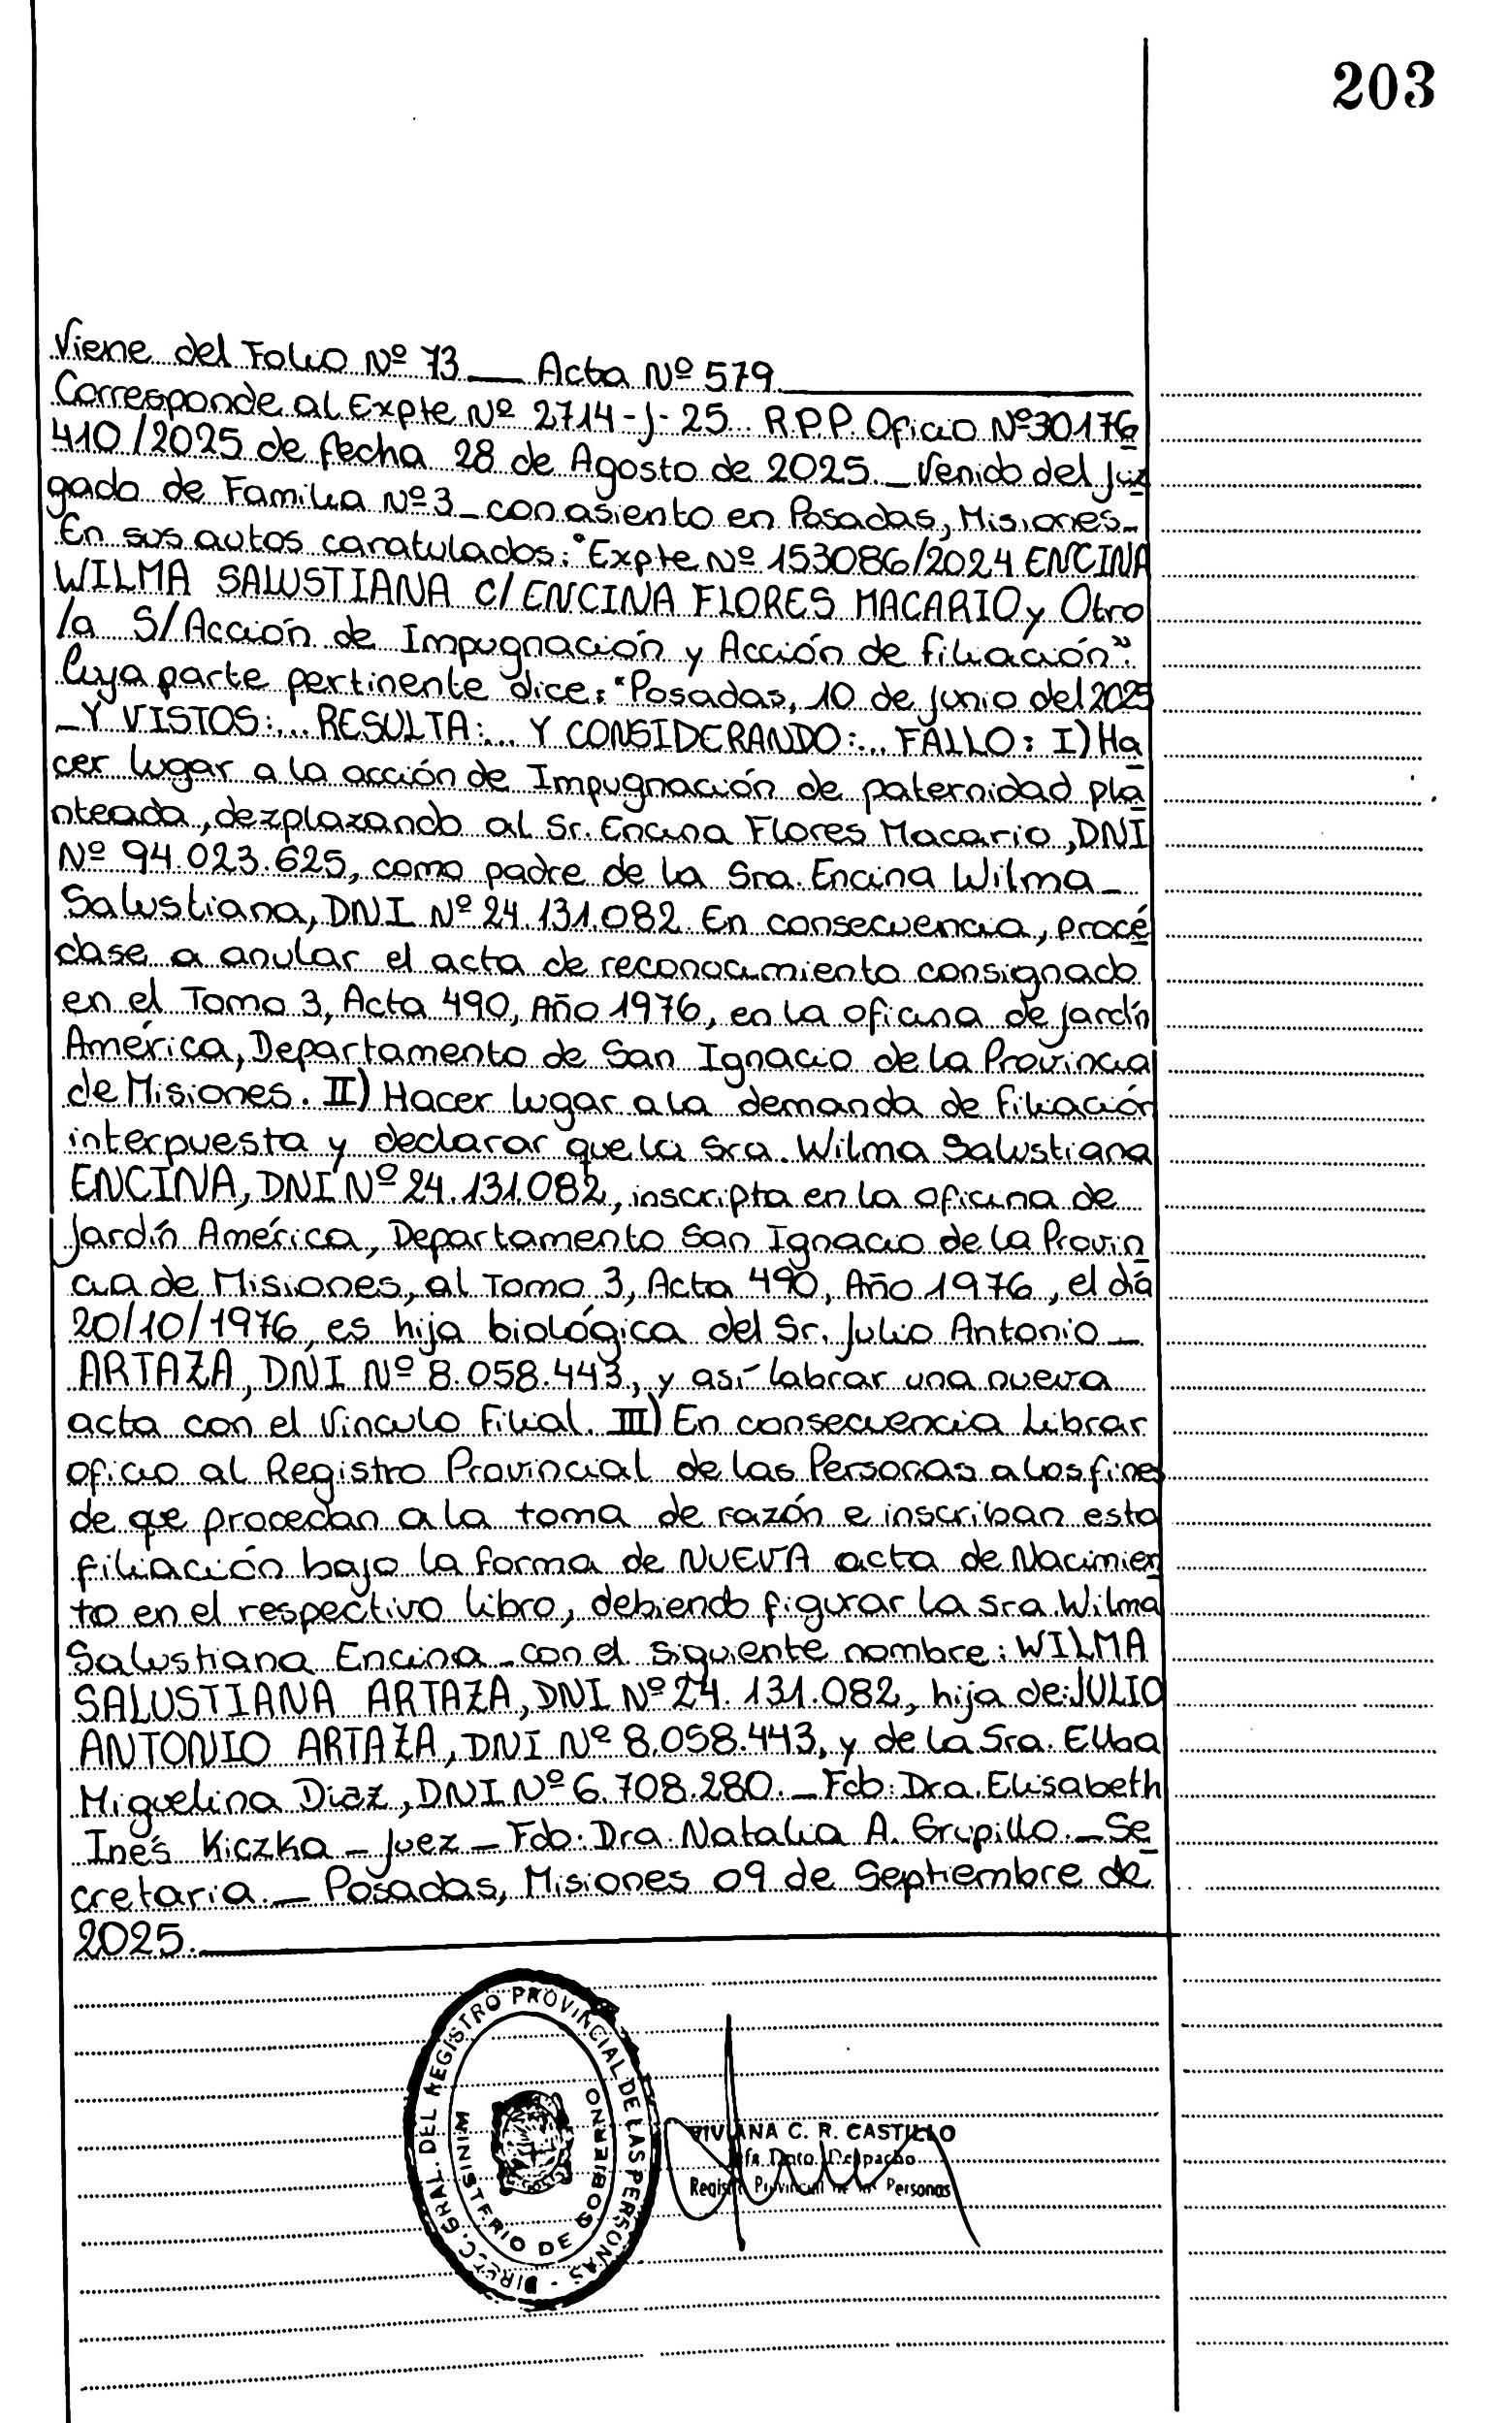 203
Viene del Folio Nº 73 — Acta Nº 579
Corresponde al Expte Nº 2714-J-25. R.P.P. Oficio Nº30176
410/2025 de fecha 28 de Agosto de 2025._ Venido del Juz
gado de Familia Nº3_ con asiento en Posadas, Misiones_
En sus autos caratulados: "Expte Nº 153086/2024 ENCINA
WILMA SALUSTIANA C/ ENCINA FLORES MACARIO y Otro
/a S/Acción de Impugnación y Acción de filiación".
Cuya parte pertinente dice: "Posadas, 10 de Junio del 2025
_Y VISTOS:... RESULTA:... Y CONSIDERANDO:... FALLO: I) Ha
cer lugar a la acción de Impugnación de paternidad pla
nteada, dezplazando al Sr. Encina Flores Macario, DNI
Nº 94.023.625, como padre de la Sra. Encina Wilma_
Salustiana, DNI Nº 24.131.082. En consecuencia, procé
dase a anular el acta de reconocimiento consignado
en el Tomo 3, Acta 490, Año 1976, en la oficina de Jardín
América, Departamento de San Ignacio de la Provincia
de Misiones. II) Hacer lugar a la demanda de filiación
interpuesta y declarar que la Sra. Wilma Salustiana
ENCINA, DNI Nº 24.131.082, inscripta en la oficina de
Jardín América, Departamento San Ignacio de la Provin
cia de Misiones, al Tomo 3, Acta 490, Año 1976, el día
20/10/1976, es hija biológica del Sr. Julio Antonio_
ARTAZA, DNI Nº 8.058.443, y así labrar una nueva
acta con el Vinculo Filial. III) En consecuencia Librar
oficio al Registro Provincial de las Personas a los fines
de que procedan a la toma de razón e inscriban esta
filiación bajo la forma de NUEVA acta de Nacimien
to en el respectivo libro, debiendo figurar la sra. Wilma
Salustiana Encina_ con el siguiente nombre: WILMA
SALUSTIANA ARTAZA, DNI Nº 24.131.082, hija de: JULIO
ANTONIO ARTAZA, DNI Nº 8.058.443, y de la Sra. Elba
Miguelina Diaz, DNI Nº 6.708.280._ Fdo: Dra. Elisabeth
Inés Kiczka _ Juez _ Fdo: Dra. Natalia A. Grupillo._ Se
cretaria._ Posadas, Misiones 09 de Septiembre de
2025.
DIRECC. GRAL. DEL REGISTRO PROVINCIAL DE LAS PERSONAS -
MINISTERIO DE GOBIERNO
VIVIANA C. R. CASTILLO
Jefe Dpto. Despacho
Registro Provincial de las Personas